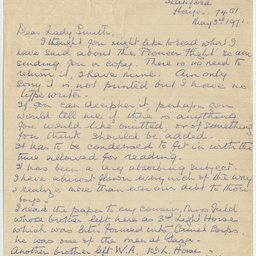 Seaforth
Harper 7451.
May 3rd 1971.
Dear Lady Smith.
I thought you might like to read what I
have said about the Pioneer Flight so am
sending you a copy. There is no need to
return it, I have mine. Am only
sorry it is not printed but I have no
type writer.
If you can decipher it, perhaps you
would tell me if there is anything
you would like omitted, or of something
you think should be added.
It has to be condensed to get in with the
time allowed for reading.
It has been a very absorbing subject.
I have almost flown every inch of the way
& realize more than ever our debt to those
boys.
I read the paper to my cousin, Miss Guild
whose brother left here as 3rd Light Horse
which was later formed into Camel Corps
he was one of the men at Gaza.
Another brother left W.A. 10th L. Horse